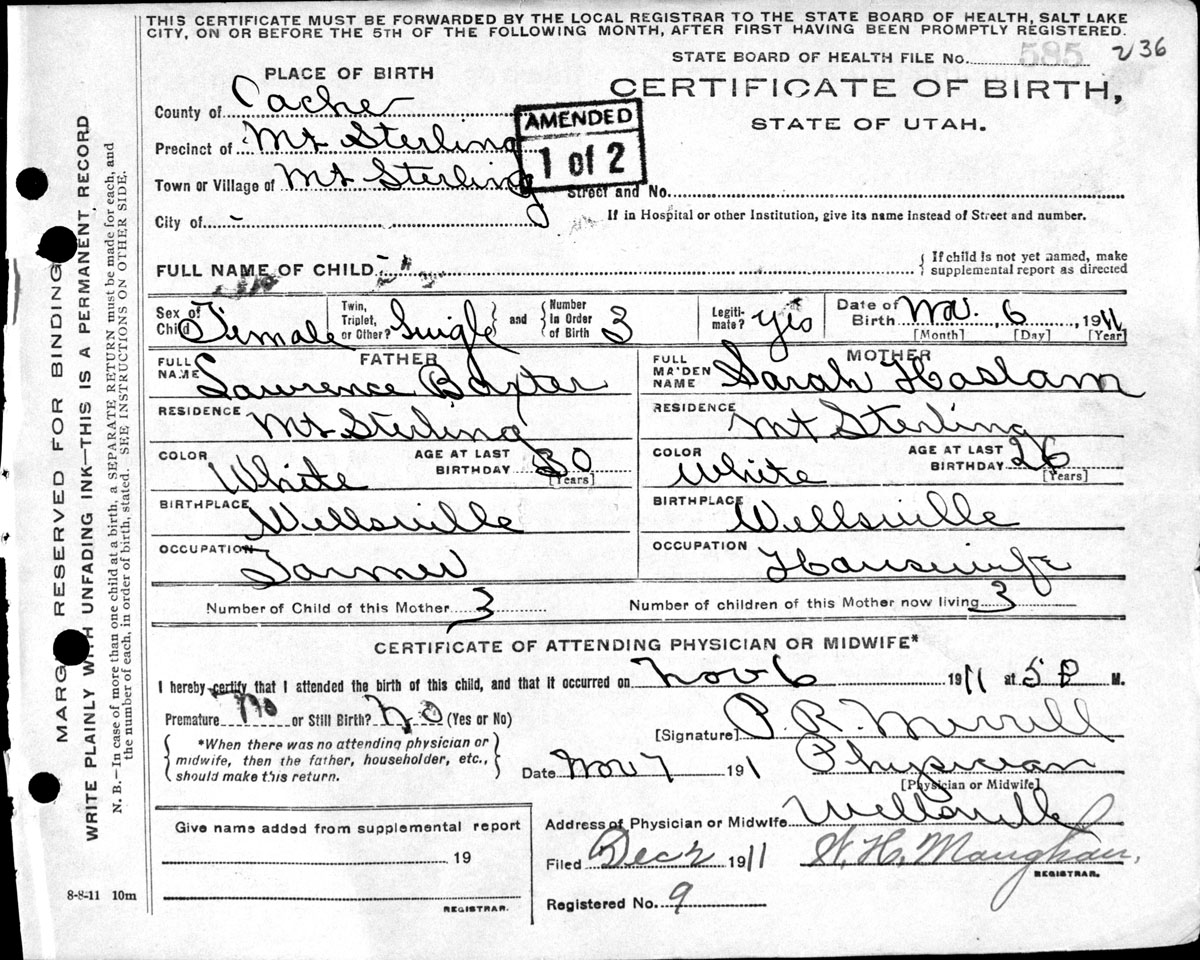 THIS CERTIFICATE MUST BE FORWARDED BY THE LOCAL REGISTRAR TO THE STATE BOARD OF HEALTH, SALT LAKE
CITY, ON OR BEFORE THE 5TH OF THE FOLLOWING MONTH, AFTER FIRST HAVING BEEN PROMPTLY REGISTERED.
STATE BOARD OF HEALTH FILE No. 585 236
PLACE OF BIRTH
CERTIFICATE OF BIRTH,
STATE OF UTAH.
County of Cache
AMENDED
1 of 2
Precinct of Mt Sterling
Town or Village of Mt Sterling
Street and No.
City of -
If in Hospital or other Institution, give its name instead of Street and number.
FULL NAME OF CHILD -
{ If child is not yet named, make
supplemental report as directed
Sex of Child Female
Twin, Triplet, or Other? Single and { Number In Order of Birth 3
Legiti-mate? yes
Date of Birth Nov. 6, 1911
[Month] [Day] [Year]
FATHER
FULL NAME Lawrence Baxter
RESIDENCE Mt Sterling
COLOR White AGE AT LAST BIRTHDAY 30
[Years]
BIRTHPLACE Wellsville
OCCUPATION Farmer
MOTHER
FULL MAIDEN NAME Sarah Haslam
RESIDENCE Mt Sterling
COLOR White AGE AT LAST BIRTHDAY 26
[Years]
BIRTHPLACE Wellsville
OCCUPATION Housewife
Number of Child of this Mother 3 Number of children of this Mother now living 3
CERTIFICATE OF ATTENDING PHYSICIAN OR MIDWIFE*
I hereby certify that I attended the birth of this child, and that it occurred on Nov 6 1911 at 5 P M.
Premature No or Still Birth? No (Yes or No)
{ *When there was no attending physician or
midwife, then the father, householder, etc.,
should make this return. }
[Signature] P. R. Merrill
Date Nov 7 191 Physician
[Physician or Midwife]
Give name added from supplemental report
19
REGISTRAR.
Address of Physician or Midwife Wellsville
Filed Dec 2 1911 W. H. Maughan,
REGISTRAR.
Registered No. 9
8-8-11 10m
MARG RESERVED FOR BINDING
WRITE PLAINLY WITH UNFADING INK—THIS IS A PERMANENT RECORD
N. B.—In case of more than one child at a birth, a SEPARATE RETURN must be made for each, and
the number of each, in order of birth, stated. SEE INSTRUCTIONS ON OTHER SIDE.